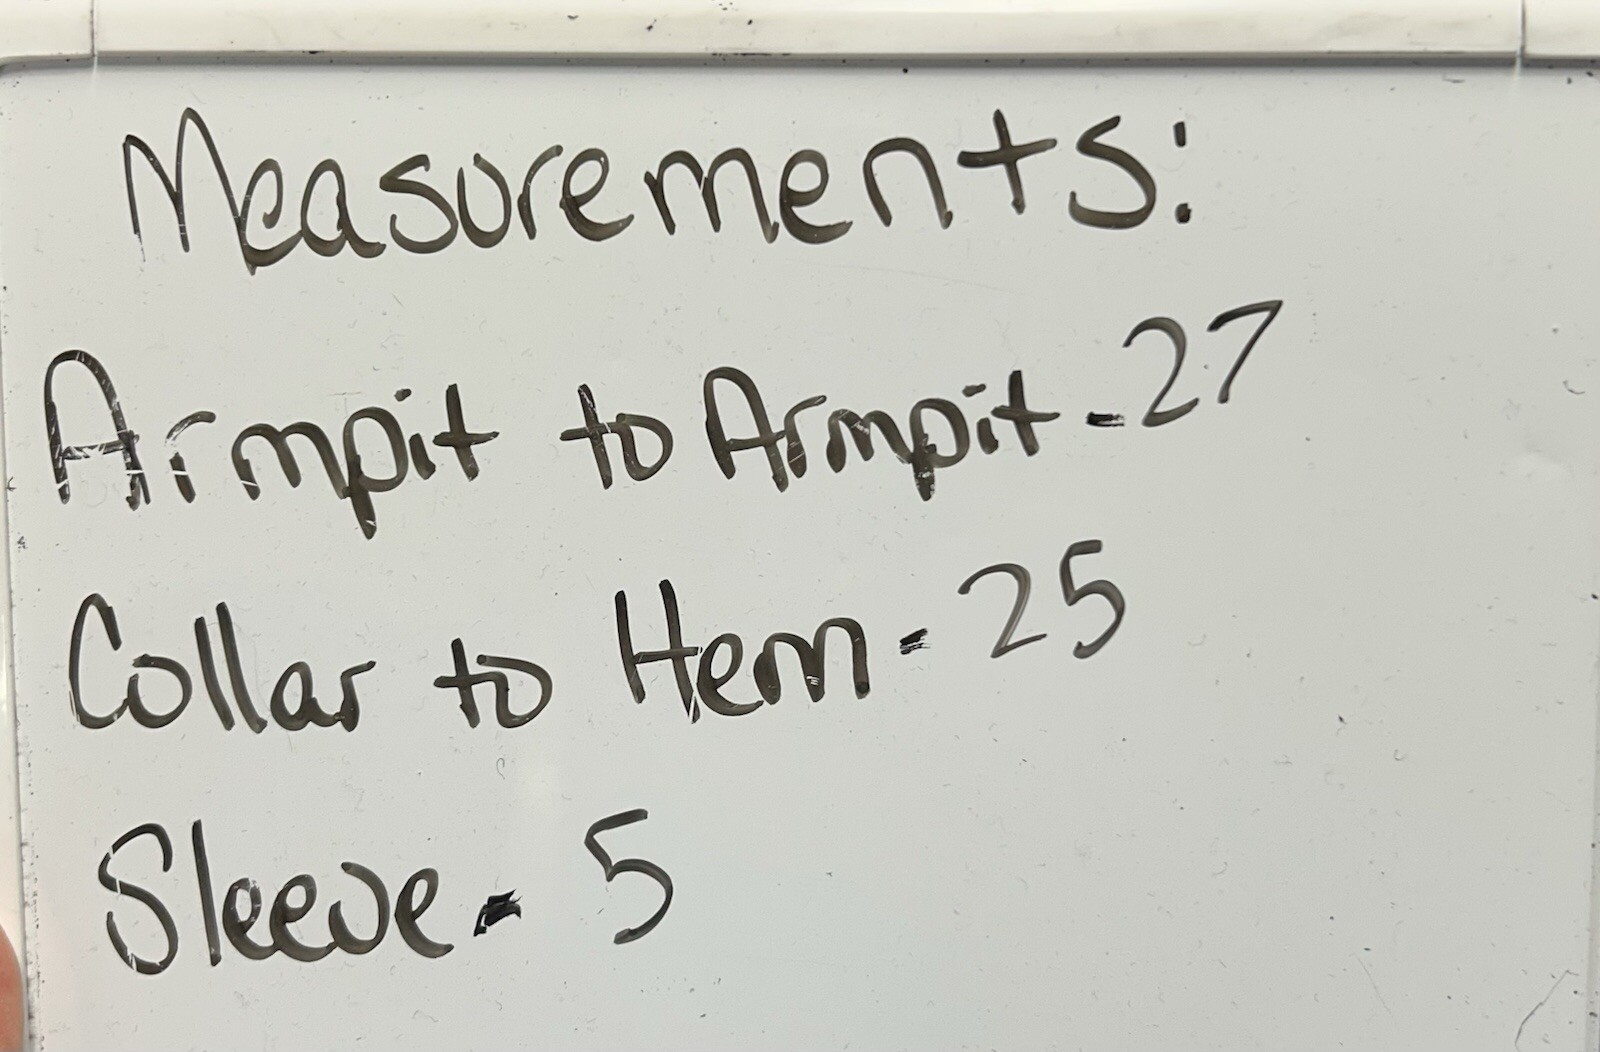 Measurements:
Armpit to Armpit - 27
Collar to Hem - 25
Sleeve - 5